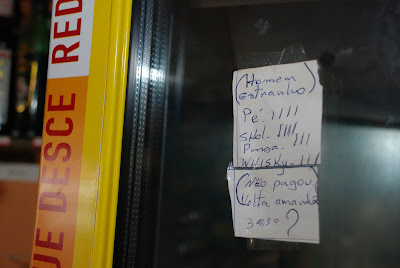 UE DESCE RED
(Homem
Estranho)
Pé. ||||
Skol. ||||
Pinga. |||
Whisky - |||
(Não pagou
Volta amanhã
30,30 ?